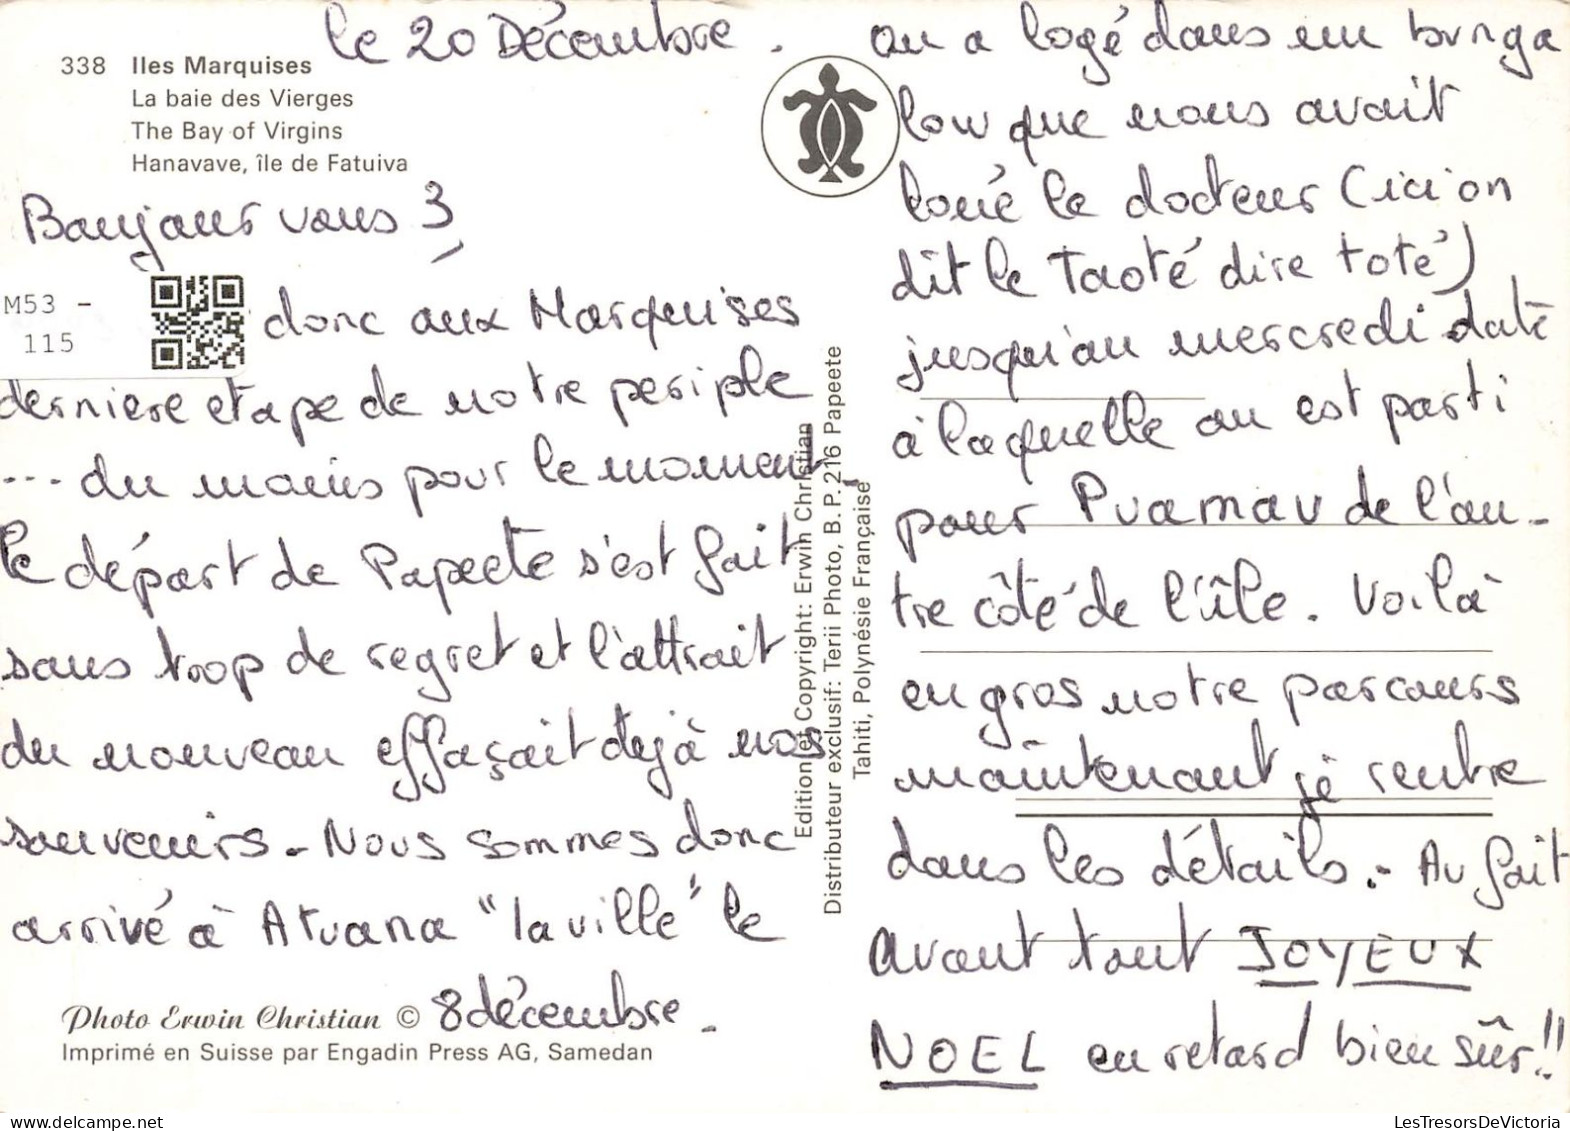 le 20 Décembre.
338 Iles Marquises
La baie des Vierges
The Bay of Virgins
Hanavave, île de Fatuiva
Bonjour vous 3,
M53 -
115
donc aux Marquises
derniere etape de notre periple
... du moins pour le moment,
le départ de Papeete s'est fait
sans trop de regret et l'attrait
du nouveau effaçait dejà nos
souvenirs - Nous sommes donc
arrivé à Atuana "la ville" le
8 décembre.
Photo Erwin Christian ©
Imprimé en Suisse par Engadin Press AG, Samedan
Edition et Copyright: Erwin Christian
Distributeur exclusif: Terii Photo, B. P. 216 Papeete
Tahiti, Polynésie Française
on a logé dans un bunga
low que nous avait
loué le docteur (ici on
dit le Taoté dire toté)
jusqu'au mercredi date
à laquelle on est parti
pour Puamau de l'au-
tre côté de l'île. Voilà
en gros notre parcours
maintenant je rentre
dans les détails. - Au fait
avant tout JOYEUX
NOEL en retard bien sûr!!
LesTresorsDeVictoria